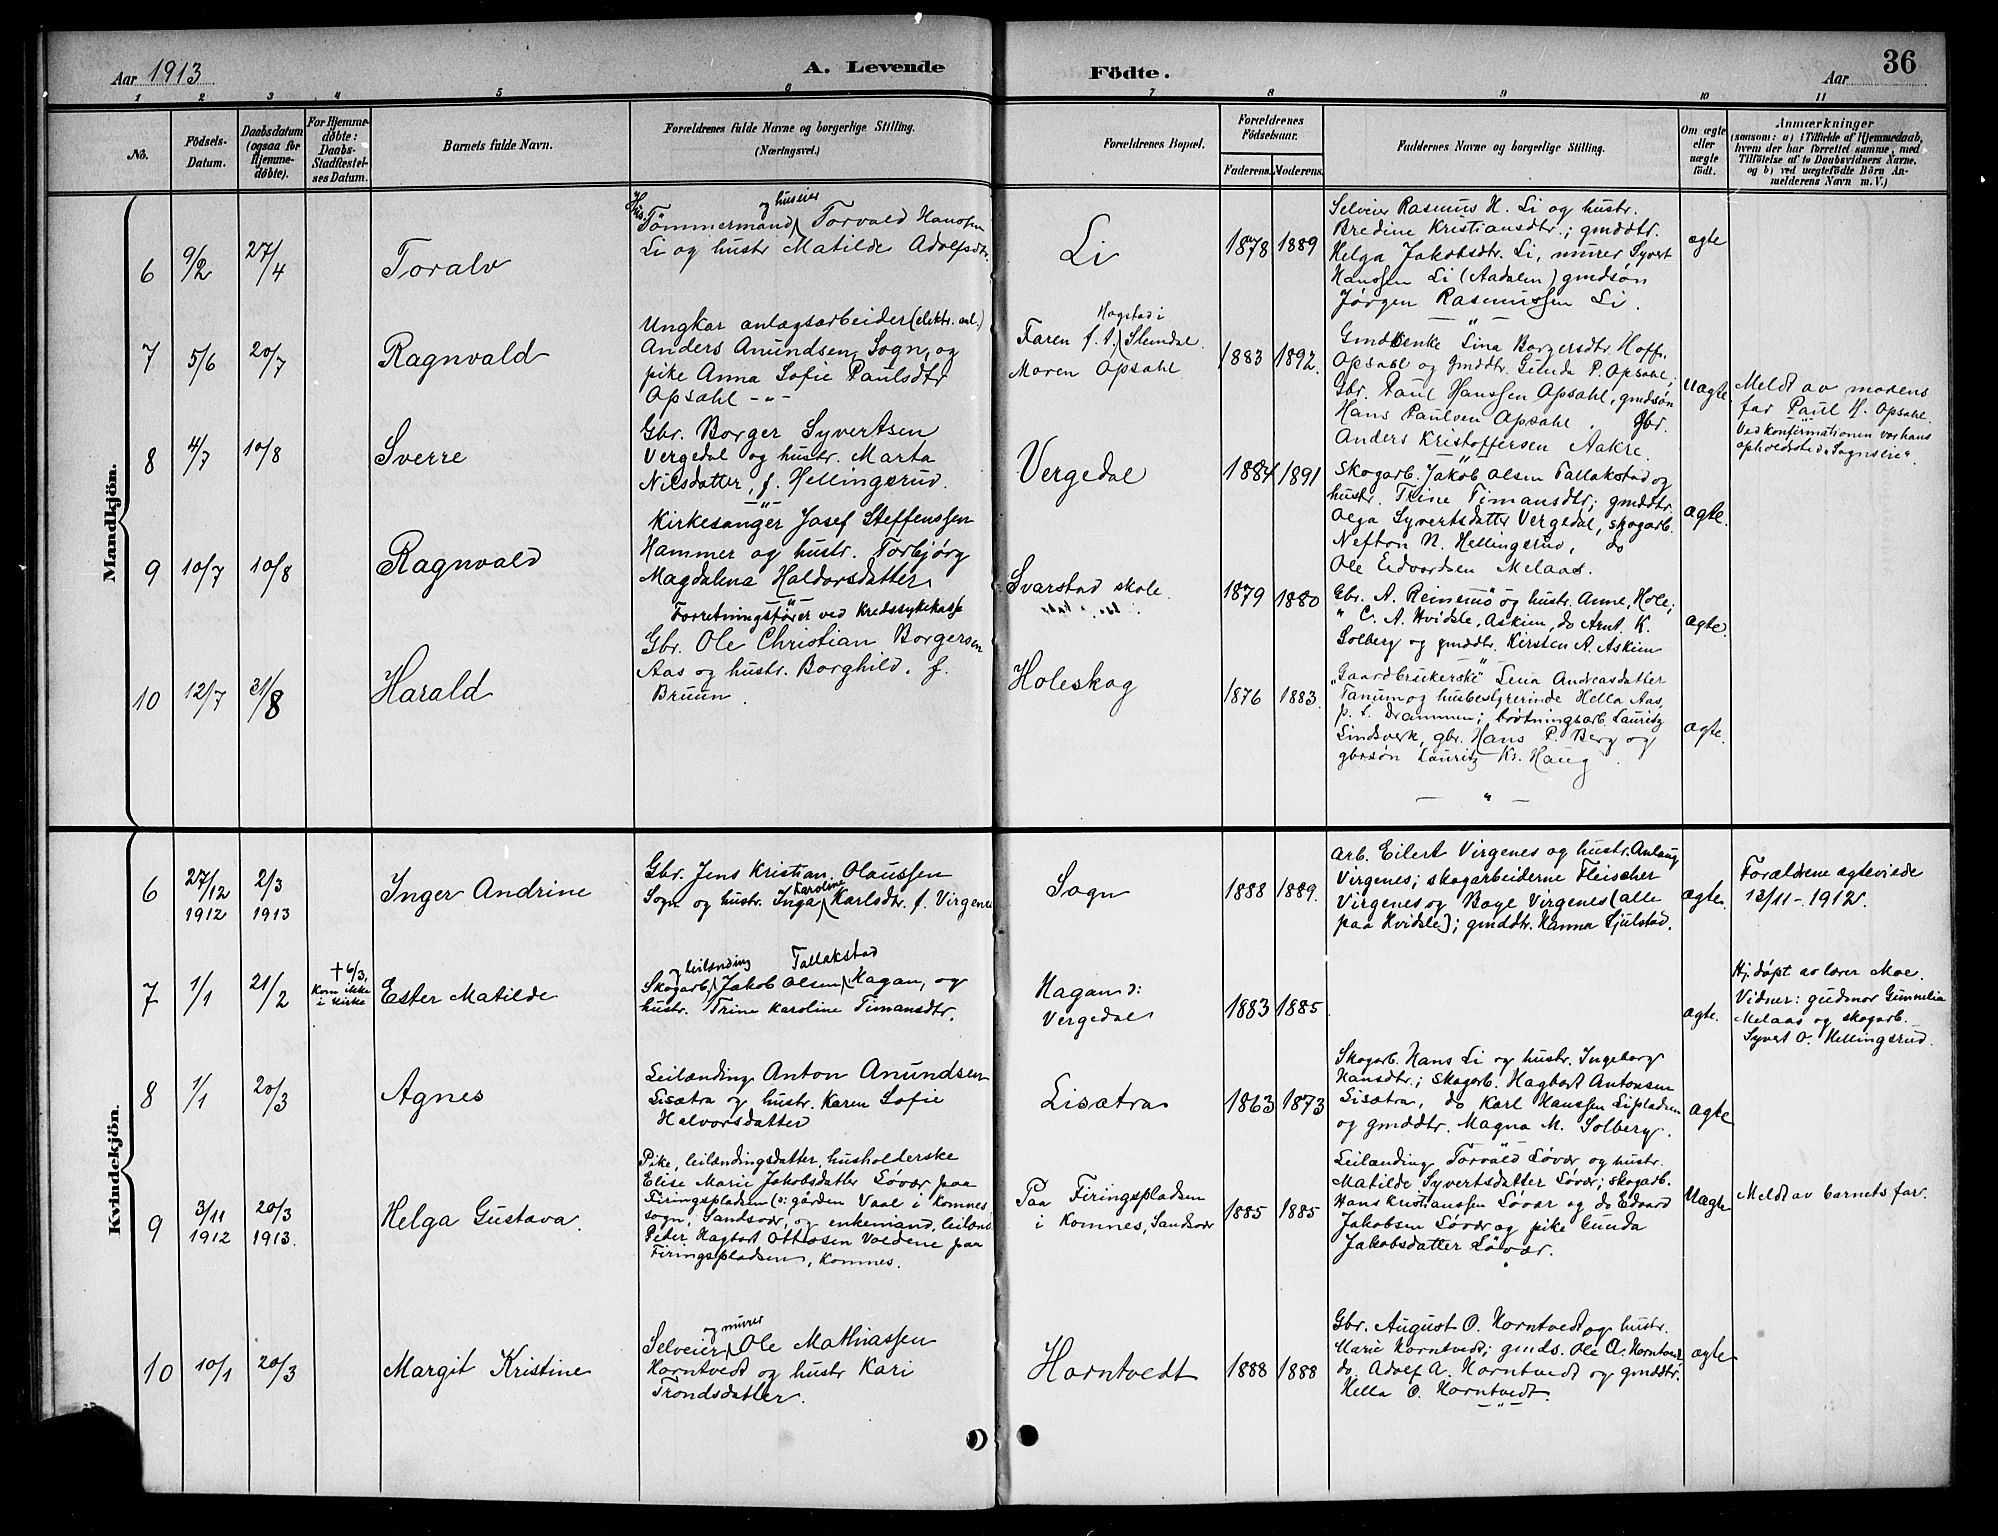 Aar 1913
A. Levende
Födte.
Aar
36
1 2 3 4 5 6 7 8 9 10 11
No.
Födsels-
Datum.
Daabsdatum
(ogsaa for
Hjemme-
døbte).
For Hjemme-
døbte:
Daabs-
Stadfæstel-
ses Datum.
Barnets fulde Navn.
Forældrenes fulde Navne og borgerlige Stilling.
(Næringsvei.)
Forældrenes Bopæl.
Forældrenes
Födselsaar.
Faderens. Moderens.
Faddernes Navne og borgerlige Stilling.
Om ægte
eller
uægte
født.
Anmærkninger
(saasom: a) i Tilfælde af Hjemmedaab,
hvem der har forrettet samme, med
Tilføielse af to Daabsvidners Navne,
og b) ved uægtefödte Börn An-
melderens Navn m. V.)
Mandkjön.
6 9/2 27/4
Toralv
Hus.
og huseier
Tömmermand, Torvald Hanssen
Li og hustr. Matilde Adolfsdtr.
Li
1878 1889
Selveier Rasmus H. Li og hustr.
Bredine Kristiansdtr.; gmddtr.
Helga Jakobsdtr. Li, murer Syvert
Hanssen Li (Aadalen) gmdsön
Jørgen Rasmussen Li.
ægte
7 5/6 20/7
Ragnvald
Ungkar anlægsarbeider (elektr. anl.)
Anders Amundsen Sogn, og
pike Anna Sofie Paulsdtr
Opsahl -"-
Hogstad i
Faren f. t. Slemdal
Moren Opsahl
1883 1892.
Gmdenke Lina Borgersdtr. Hoff,
Opsahl og gmddtr. Gunda P. Opsahl;
Gbr. Paul Hanssen Opsahl, gmdsön
Hans Paulsen Opsahl. Gbr.
Anders Kristoffersen Aakre.
Uægte.
Meldt av morens
far Paul H. Opsahl.
Ved konfirmationen var hans
opholdssted "Sognseie".
8 4/7 10/8
Sverre
Gbr. Borger Syvertsen
Vergedal og hustr. Marta
Nilsdatter, f. Hellingsrud.
Vergedal
1884 1891
Skogarb. Jakob Olsen Tallakstad og
hustr. Trine Timansdtr; gmddtr.
Olga Syvertsdatter Vergedal, skogarb.
Nefton N. Hellingsrud, do
Ole Edvardsen Melaas.
ægte.
9 10/7 10/8
Ragnvald
Kirkesanger Josef Steffenssen
Hammer og hustr. Torbjørg
Magdalena Haldorsdatter
Svarstad skole.
1879 1880
Gbr. A. Reinemo og hustr. Anne, Hole;
" C. A. Hvidsle, Askim, do Arnt. K.
Solberg og gmddtr. Kirsten A. Askim
ægte.
10 12/7 31/8
Harald
Forretningsfører ved Kredssykekasse
Gbr. Ole Christian Borgersen
Aas og hustr. Borghild, f.
Bruun
Holeskog
1876 1883.
"Gaardbrukerske" Lena Andreasdatter
Tanum og husbestyrerinde Hella Aas,
p. t. Drammen; brötningsarb. Lauritz
Lindsverk, gbr. Hans P. Berg og
gbrsön Lauritz Kr. Haug.
- " -
ægte.
Kvindekjön.
6 27/12 1912 2/3 1913
Inger Andrine
Gbr. Jens Kristian Olaussen
Karoline
Sogn og hustr. Inga Karlsdtr. f. Virgenes
Sogn
1888 1889.
Arb. Eilert Virgenes og hustr. Anlaug
Virgenes; skogarbeiderne Fleischer
Virgenes og Boye Virgenes (alle
paa Kvidsle); gmddtr. Hanna Sjulstad.
ægte.
Forældrene ægteviede
13/11-1912.
7 1/1 21/2
† 6/3.
Kom ikke
i kirke
Ester Matilde
og leilænding Tallakstad
Skogarb. Jakob Olsen Hagan, og
hustr. Trine Karoline Timansdtr.
Hagan ɔ:
Vergedal
1883 1885
ægte.
Hj.døpt av lærer Moe.
Vidner: gudmor Gunnelia
Melaas og skogarb.
Syvert O. Hellingsrud.
8 1/1 20/3
Agnes
Leilænding Anton Amundsen
Lisætra og hustr. Karen Sofie
Halvorsdatter
Lisætra
1863 1873
Skogarb. Hans Li og hustr. Ingeborg
Hansdtr.; skogarb. Hagbart Antonsen
Lisætra, do Karl Hanssen Lipladsen
og gmddtr. Magna M. Solberg.
ægte
9 3/11 1912 20/3 1913.
Helga Gustava.
Pike, leilændingsdatter, husholderske
Elise Marie Jakobsdatter Løvær paa
Firingspladsen (ɔ: gården Vaal i Komnes
sogn, Sandsvær, og enkemand, leilænd.
Peter Hagbart Ottosen Voldene paa
Firingspladsen, Komnes.
Paa Firingspladsen
i Komnes, Sandsvær
1885 1885
Leilænding Torvald Løvær og hustr.
Matilde Syvertsdatter Løvær; skogarb.
Hans Kristianssen Løvær og do Edvard
Jakobsen Løvær og pike Gunda
Jakobsdatter Løvær.
Uægte
Meldt av barnets far.
10 10/1 20/3
Margit Kristine
og murer
Selveier Ole Mathiassen
Horntvedt og hustr Kari
Trondsdatter.
Horntvedt
1888 1888
Gbr. August O. Horntvedt og hustr.
Marie Horntvedt; gmds. Ole A. Horntvedt,
do. Adolf A. Horntvedt og gmddtr.
Hella O. Horntvedt.
ægte